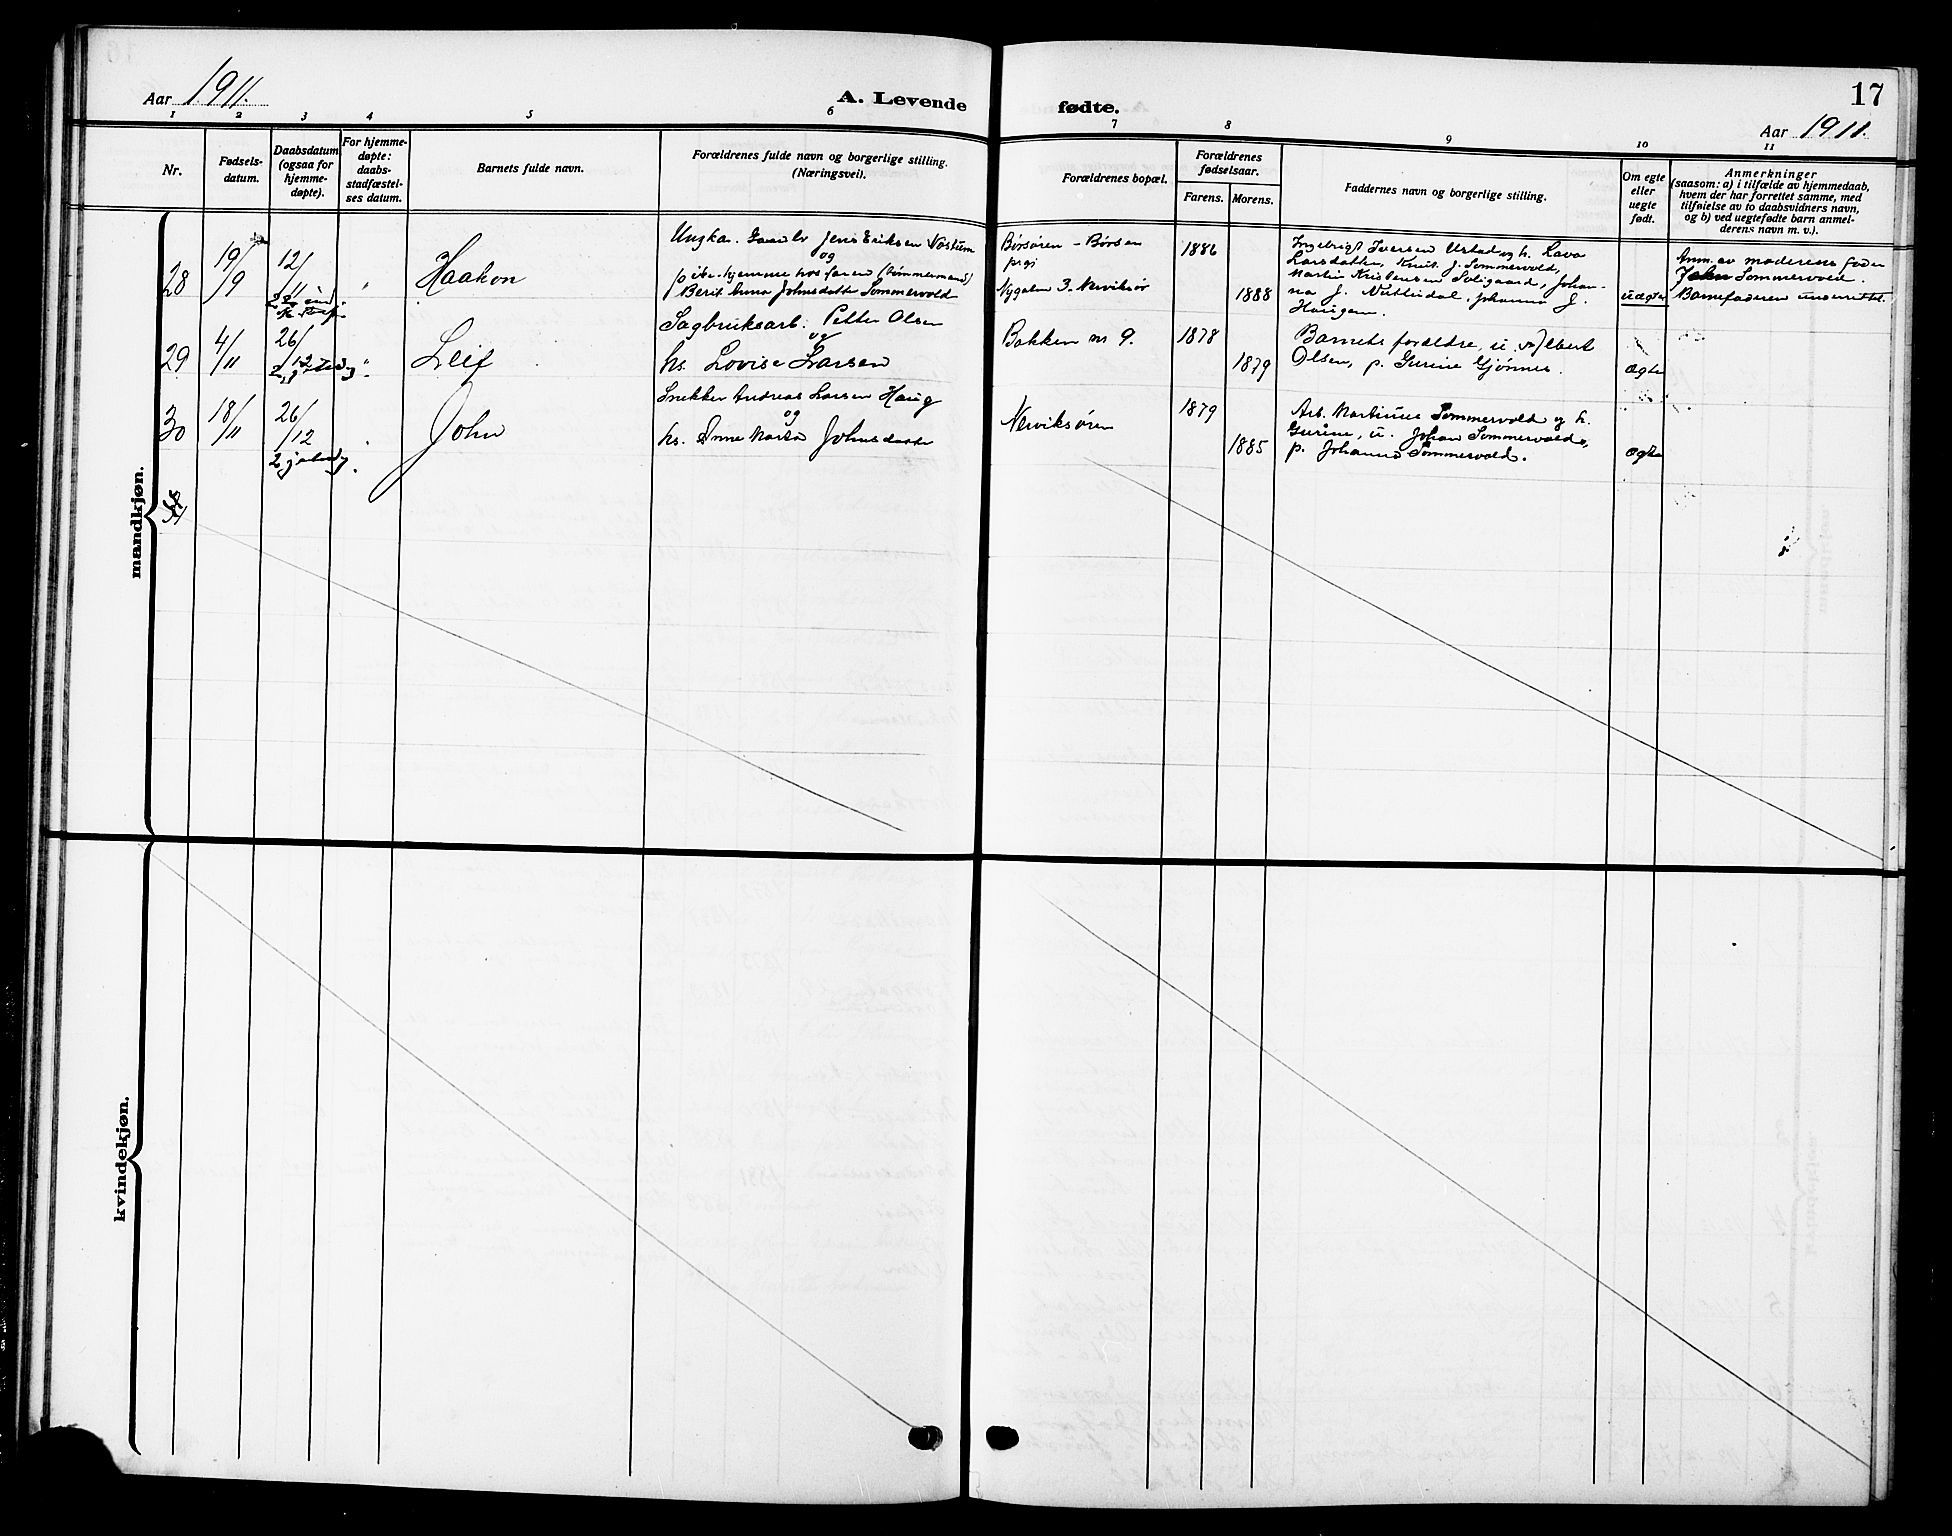 Aar 1911.
A. Levende fødte.
17
Aar 1911.
1 2 3 4 5 6 7 8 9 10 11
Nr.
Fødsels-
datum.
Daabsdatum
(ogsaa for
hjemme-
døpte).
For hjemme-
døpte:
daabs-
stadfæstel-
ses datum.
Barnets fulde navn.
Forældrenes fulde navn og borgerlige stilling.
(Næringsvei).
Forældrenes bopæl.
Forældrenes
fødselsaar.
Farens. Morens.
Faddernes navn og borgerlige stilling.
Om egte
eller
uegte
født.
Anmerkninger
(saasom: a) i tilfælde av hjemmedaab,
hvem der har forrettet samme, med
tilføielse av to daabsvidners navn,
og b) ved uegtefødte barn anmel-
derens navn m. v.).
mandkjøn.
28
19/9
12/11
Haakon
Ungka. Jens Eriksen
og
p hjemme hos faren (tømmermand)
Berit Anna Johnsdatter Sommervold
Børsøren - Børsen
prgj
Nygaten 3. Nerviksør
1886
1888
Ingebrigt Iversen Ustad og h. Lava
Larsdatter, Knut J. Sommervold,
Martin Kristensen Soligaard, Johan-
na J. Johanna J.
Haugen.
uægte
Anm. av moderens fader
John Sommervold.
Barnefaderen underrettet.
29
4/11
26/12
2 juledg.
Leif
Sagbruksarb. Petter Olsen
og
hs. Lovise Larsen
Bakken nr 9.
1878
1879
Barnets forældre, u. Albert
Olsen, p. Gurine Gjønnes.
ægte
30
18/11
26/12
2 juledg.
John
Snekker Andreas Larsen Haug
og
hs. Anne Marta Johnsdatter
Nerviksøren
1879
1885
Arb. Martinus Sommervold og h.
Gurine, u. Johan Sommervold,
p. Johanna Sommervold.
ægte
kvindekjøn.